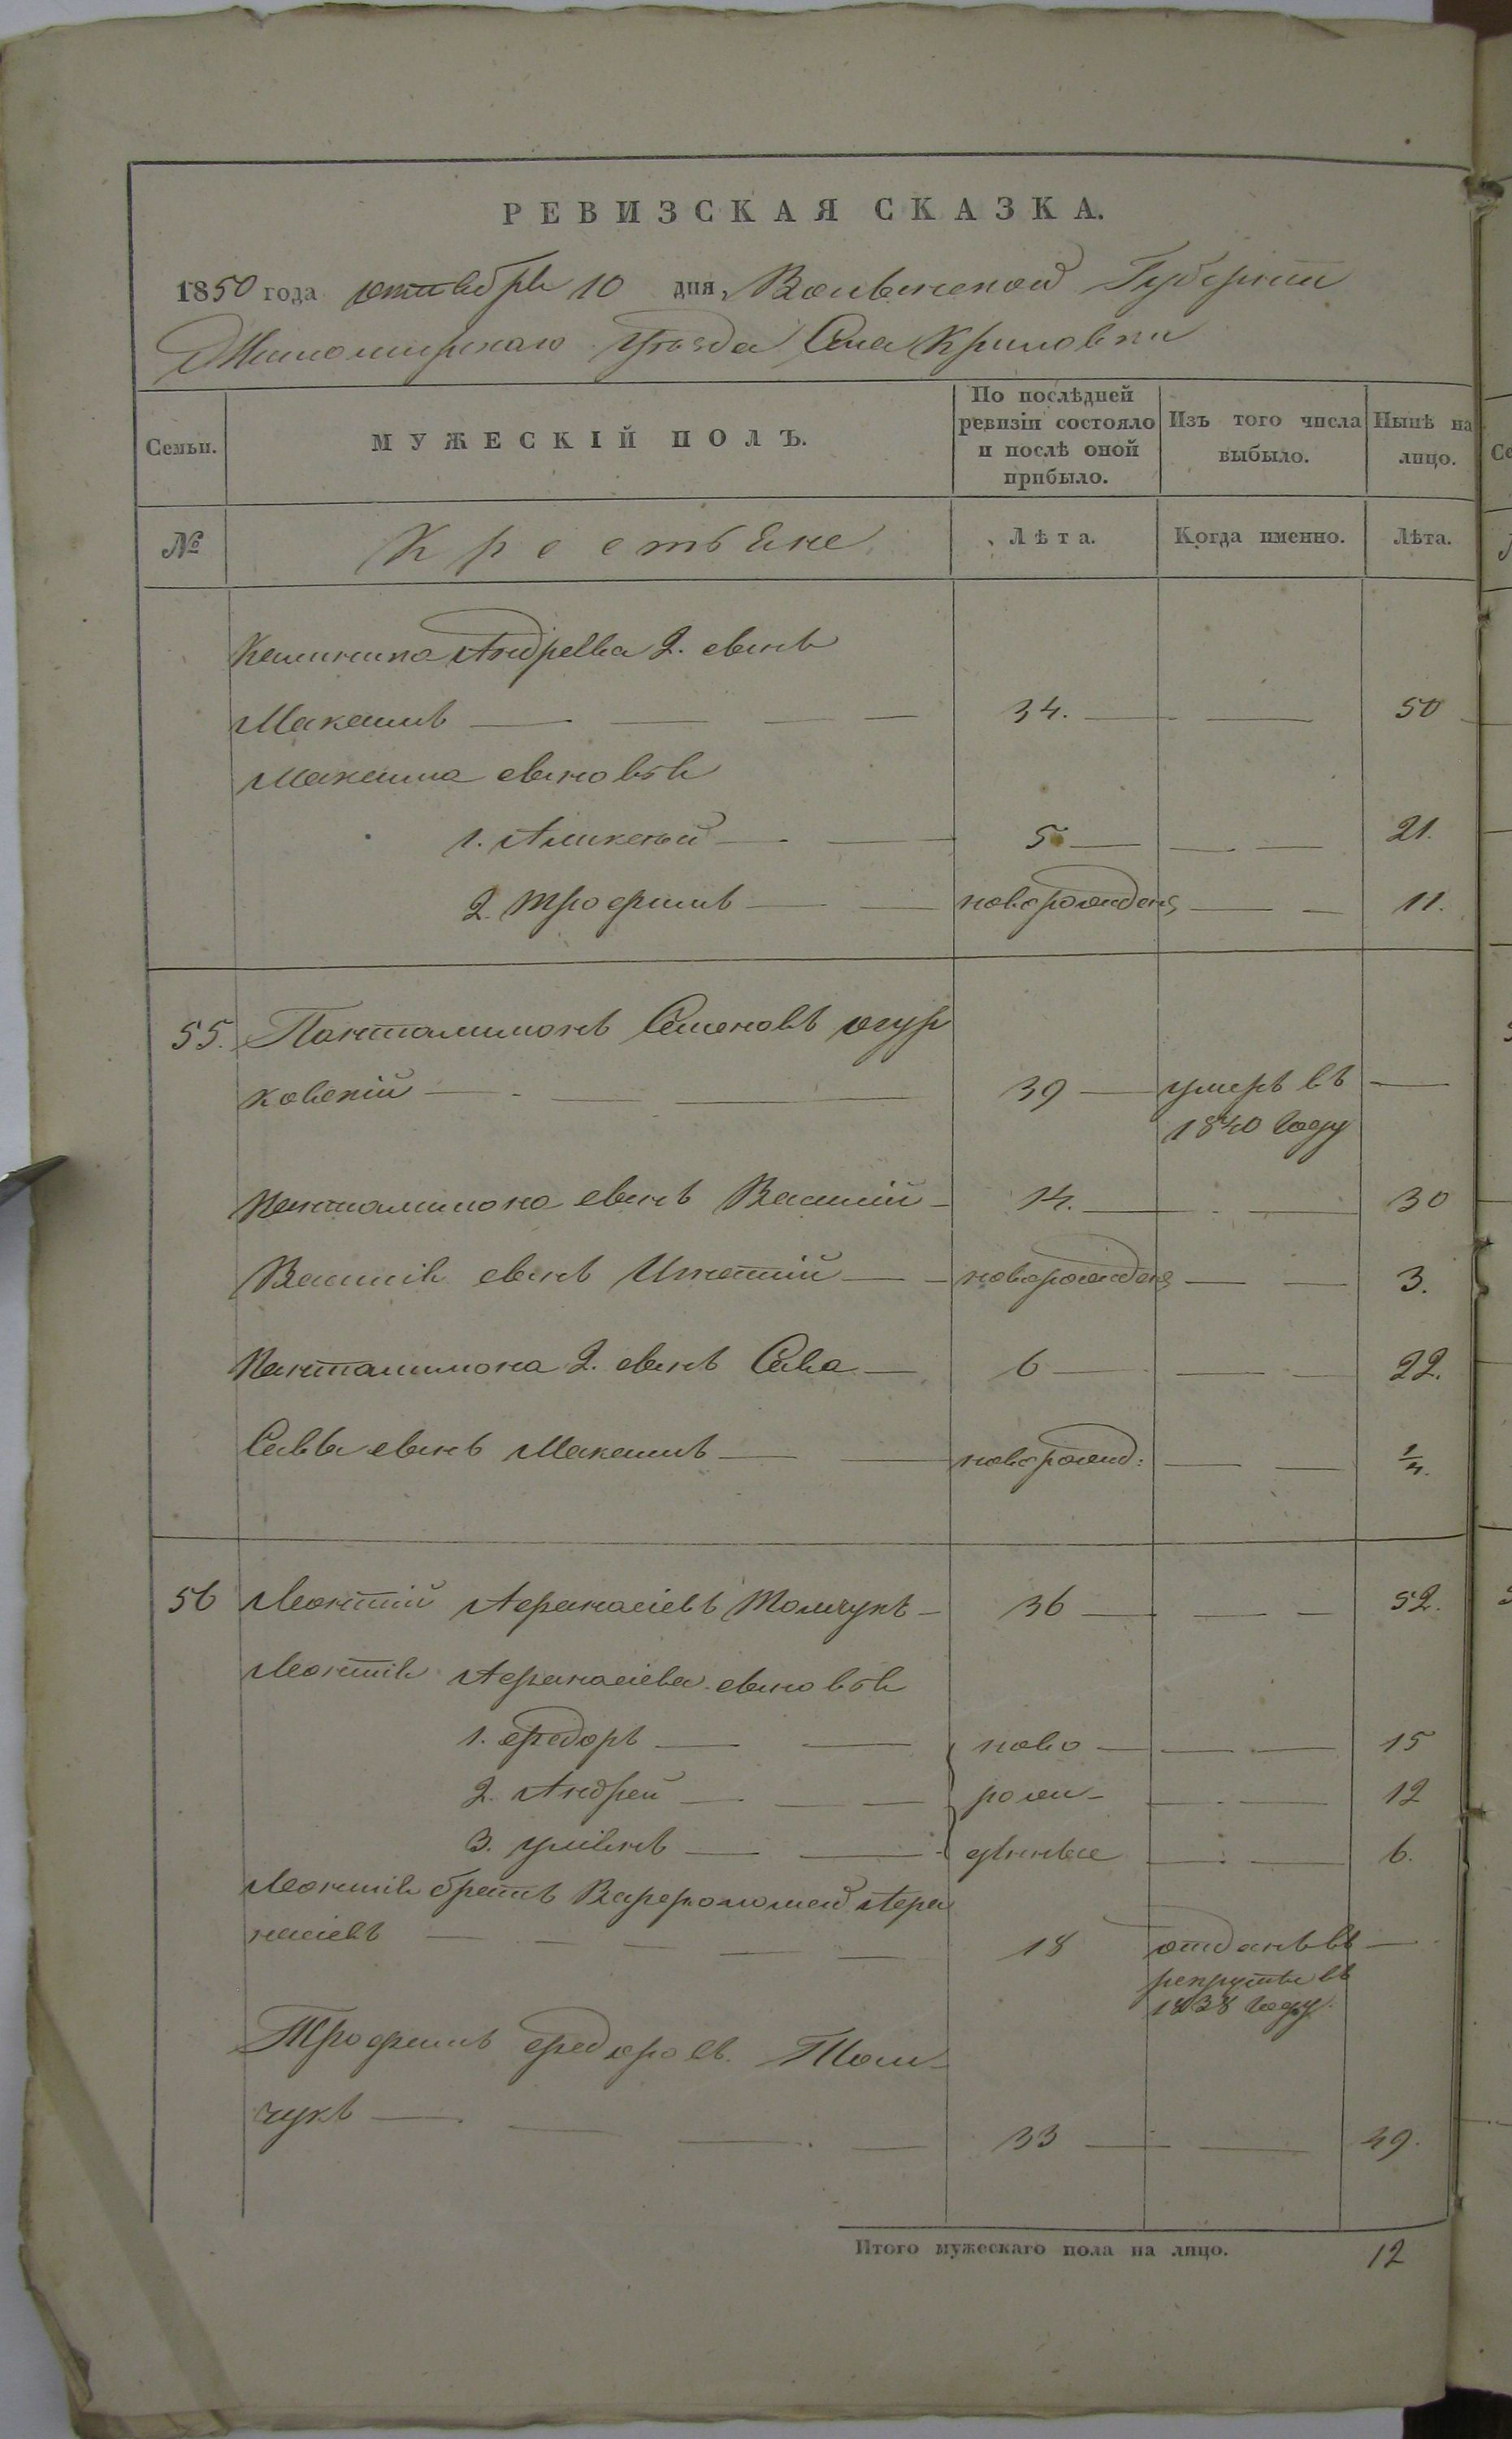 РЕВИЗСКАЯ СКАЗКА.
1850 года октября 10 дня, Волынской Губерніи
Житомирскаго Уѣзда Села Криловки
Семьи.
МУЖЕСКІЙ ПОЛЪ.
По послѣдней
ревизіи состояло
и послѣ оной
прибыло.
Изъ того числа
выбыло.
Нынѣ на
лицо.
№
Крестьяне
Лѣта.
Когда именно.
Лѣта.
Андреева 2. сынъ
Максимъ 34. 50
Максима сыновья
1. 5 21.
2. Трофимъ новорожденъ 11.
55. Панталимонъ Семеновъ Огур
ковскій 39 умеръ въ
1840 году
Панталимона сынъ Василій 14. 30
Василія сынъ Игнатій новорожденъ 3.
Панталимона 2. сынъ Сава 6 22.
Саввы сынъ Максимъ новорожд: 1/4.
56 Леонтій Афанасіевъ Томчукъ 36 52.
Леонтія Афанасіева сыновья
1. Федоръ ново 15
2. Андрей рож- 12
3. Уліянъ дѣнные 6.
Леонтія братъ Варфоломей Афа
насіевъ 18 отданъ въ
рекруты въ
1838 году.
Трофимъ Федоровъ Том-
чукъ 33 49.
Итого мужескаго пола на лицо. 12